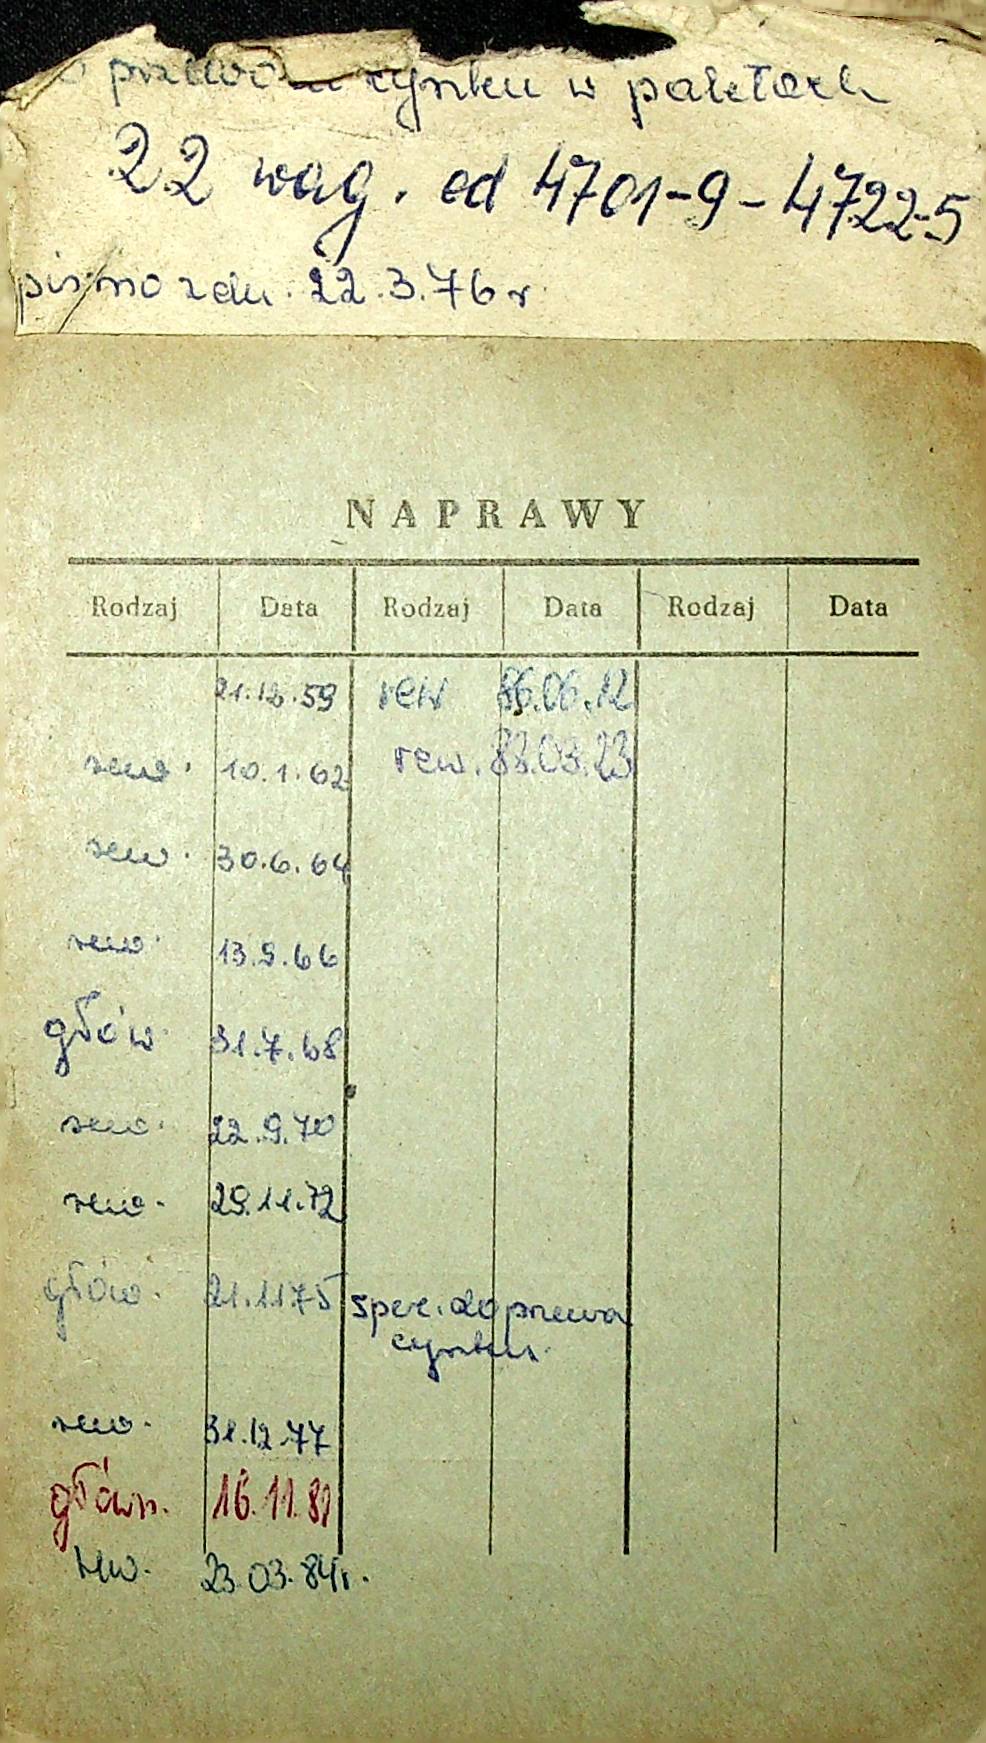 przewozu cynku w paletach
22 wag. od 4701-9 - 4722-5
pismo z dn. 22.3.76 r
NAPRAWY
Rodzaj Data Rodzaj Data Rodzaj Data
21.12.59 rew 86.06.12
rew. 10.1.62 rew. 88.03.23
rew. 30.6.64
rew. 13.9.66
głów. 31.7.68
rew. 22.9.70
rew. 29.11.72
głów. 21.11.75 spec. do przewo
cynku
rew. 31.12.77
główn. 16.11.81
rew. 23.03.84r.